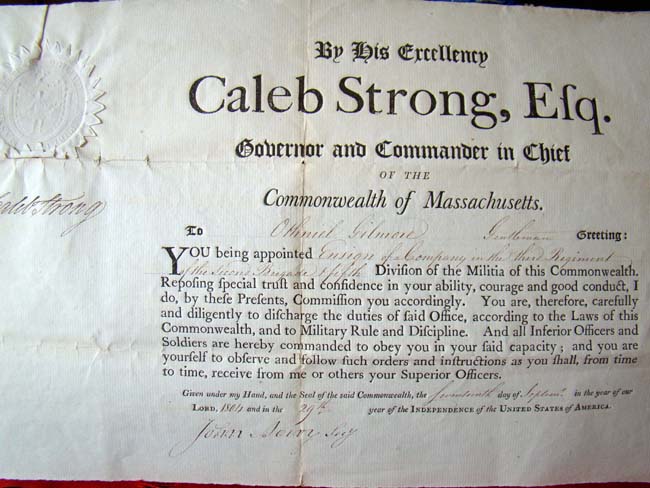 By His Excellency
Caleb Strong, Eſq.
Governor and Commander in Chief
OF THE
Commonwealth of Massachusetts.
Caleb Strong
To Othniel Gilmore Gentleman Greeting:
YOU being appointed Ensign of a Company in the third Regiment
of the Second Brigade & fifth Diviſion of the Militia of this Commonwealth.
Repoſing ſpecial truſt and confidence in your ability, courage and good conduct, I
do, by theſe Preſents, Commiſſion you accordingly. You are, therefore, carefully
and diligently to diſcharge the duties of ſaid Office, according to the Laws of this
Commonwealth, and to Military Rule and Diſcipline. And all Inferior Officers and
Soldiers are hereby commanded to obey you in your ſaid capacity; and you are
yourſelf to obſerve and follow ſuch orders and inſtructions as you ſhall, from time
to time, receive from me or others your Superior Officers.
Given under my Hand, and the Seal of the ſaid Commonwealth, the ſeventeenth day of Septemr. in the year of our
LORD, 1804 and in the 29th year of the INDEPENDENCE of the UNITED STATES OF AMERICA.
John Avery Secy